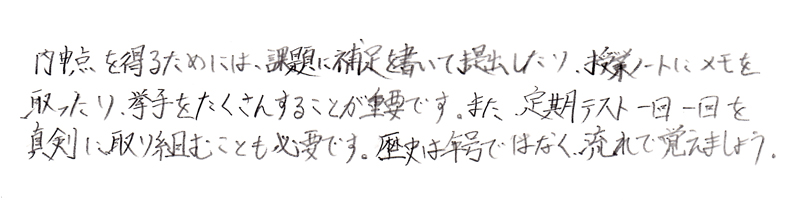 内申点を得るためには、課題に補足を書いて提出したり、授業ノートにメモを
取ったり、挙手をたくさんすることが重要です。また、定期テスト一回一回を
真剣に取り組むことも必要です。歴史は年号ではなく、流れで覚えましょう。